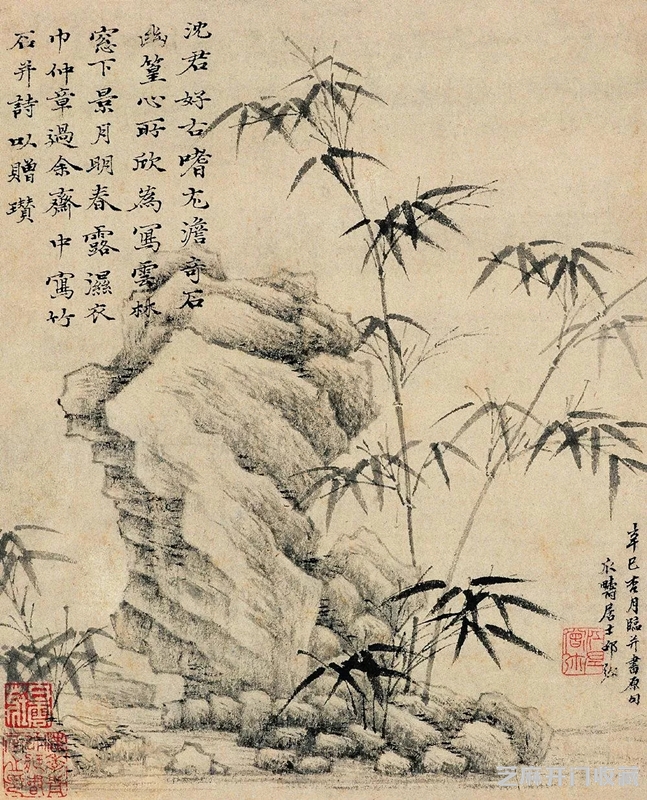 沈君好古嗜尤澹奇石
幽篁心所欣為寫雲林
窓下景月明春露濕衣
巾仲章過余齋中寫竹
石并詩以贈瓚
辛巳杏月臨并書原句
疇居士
芝麻开门收藏